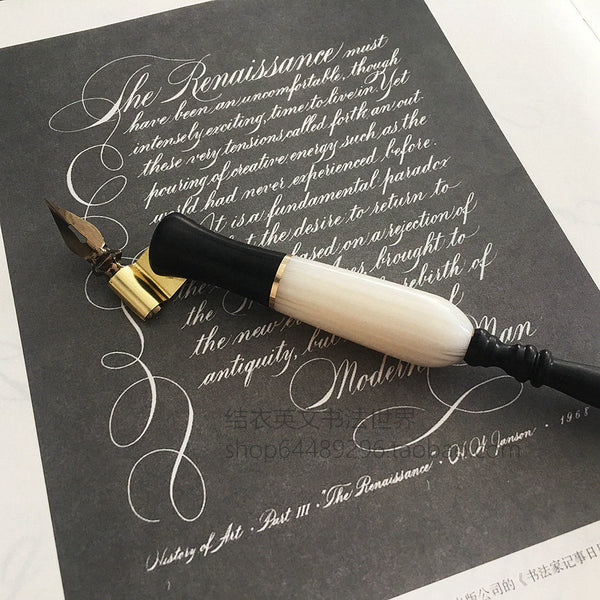 The Renaissance must
have been an uncomfortable, though
intensely exciting, time to live in. Yet
these very tensions called forth an out-
pouring of creative energy such as the
world had never experienced before.
It is a fundamental paradox
the desire to return to
based on a rejection of
brought to
the rebirth of
the new
antiquity, but Man
Modern
结衣英文书法世界
shop64489296.taobao.com
History of Art • Part III • "The Renaissance" • H. W. Janson • 1968
出版公司的《书法家记事日